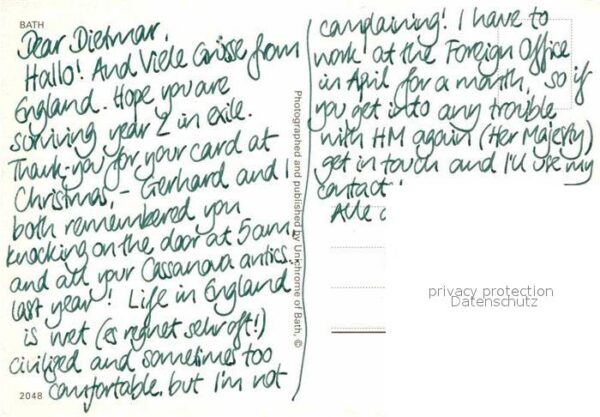 BATH
Dear Dietmar,
Hallo! And Viele Grüsse from
England. Hope you are
surviving year 2 in exile.
Thank-you for your card at
Christmas, - Gerhard and I
both remembered you
knocking on the door at 5am,
and all your Cassanova antics..
last year! Life in England
is wet (es regnet sehr oft!)
civilized and sometimes too
comfortable, but I'm not
2048
Photographed and published by Unichrome of Bath, ©
complaining! I have to
work at the Foreign Office
in April for a month, so if
you get into any trouble
with HM again (Her Majesty)
get in touch and I'll use my
contact
Alle
privacy protection
Datenschutz